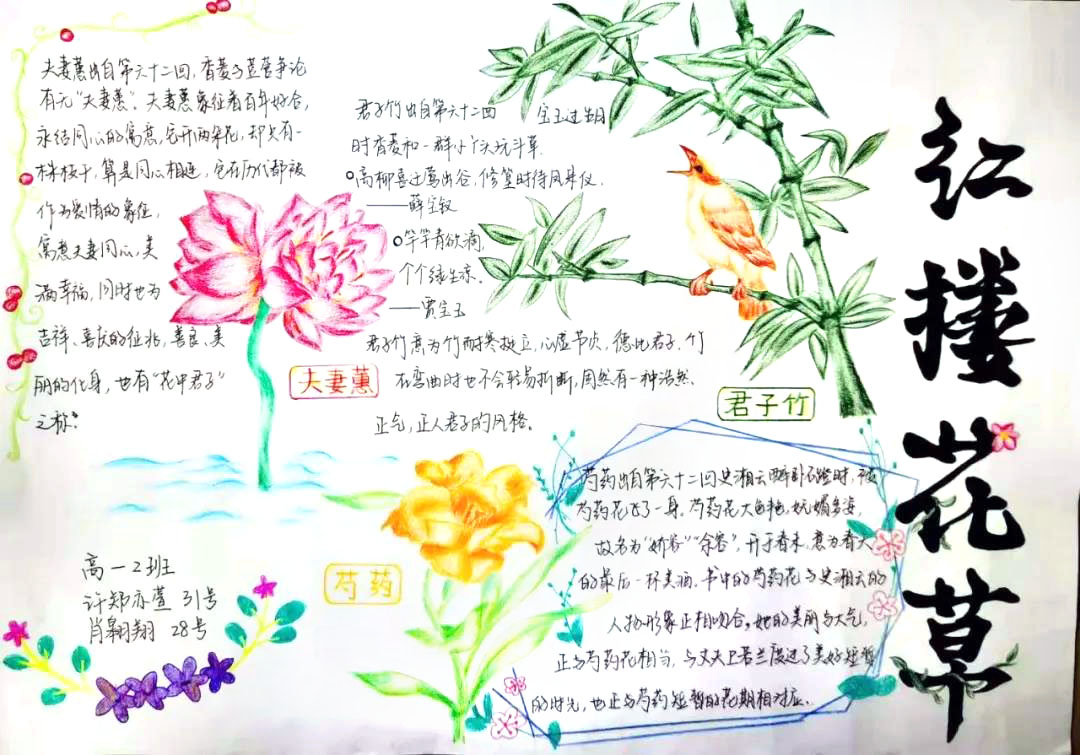 红楼花草
夫妻蕙出自第六十二回，香菱与荳官争论
有无“夫妻蕙”。夫妻蕙象征着百年好合，
永结同心的寓意，它开两朵花，却只有一
株枝干，算是同心相连，它在历代都被
作为爱情的象征，
寓意夫妻同心，美
满幸福，同时也为
吉祥、喜庆的征兆，善良、美
丽的化身，也有“花中君子”
之称。
夫妻蕙
君子竹出自第六十二回 宝玉过生日
时香菱和一群小丫头玩斗草.
高柳喜迁莺出谷，修篁时待凤来仪.
——薛宝钗
竿竿青欲滴，
个个绿生凉.
——贾宝玉
君子竹意为竹耐寒挺立，心虚节贞，德比君子、竹
在弯曲时也不会轻易折断，固然有一种浩然、
正气，正人君子的风格。
君子竹
芍药出自第六十二回史湘云醉卧石凳时，被
芍药花飞了一身。芍药花大色艳，妩媚多姿，
故名为“娇客”“余容”，开于春末，意为春天
的最后一杯美酒。书中的芍药花与史湘云的
人物形象正相吻合。她的美丽与大气，
正与芍药花相当，与丈夫卫若兰度过了美好短暂
的时光，也正与芍药短暂的花期相对应.
芍药
高一2班
许郑亦萱 31号
肖翱翔 28号